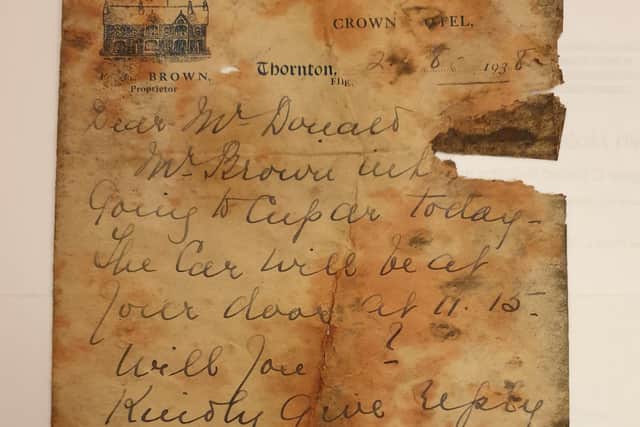 CROWN HOTEL,
BROWN,
Proprietor
Thornton,
FIFE.
2 8 - 1938
Dear Mr Donald
Mr Brown int
Going to Cupar today -
The Car will be at
Your door at 11.15-
Will You ?
Kindly Give Reply